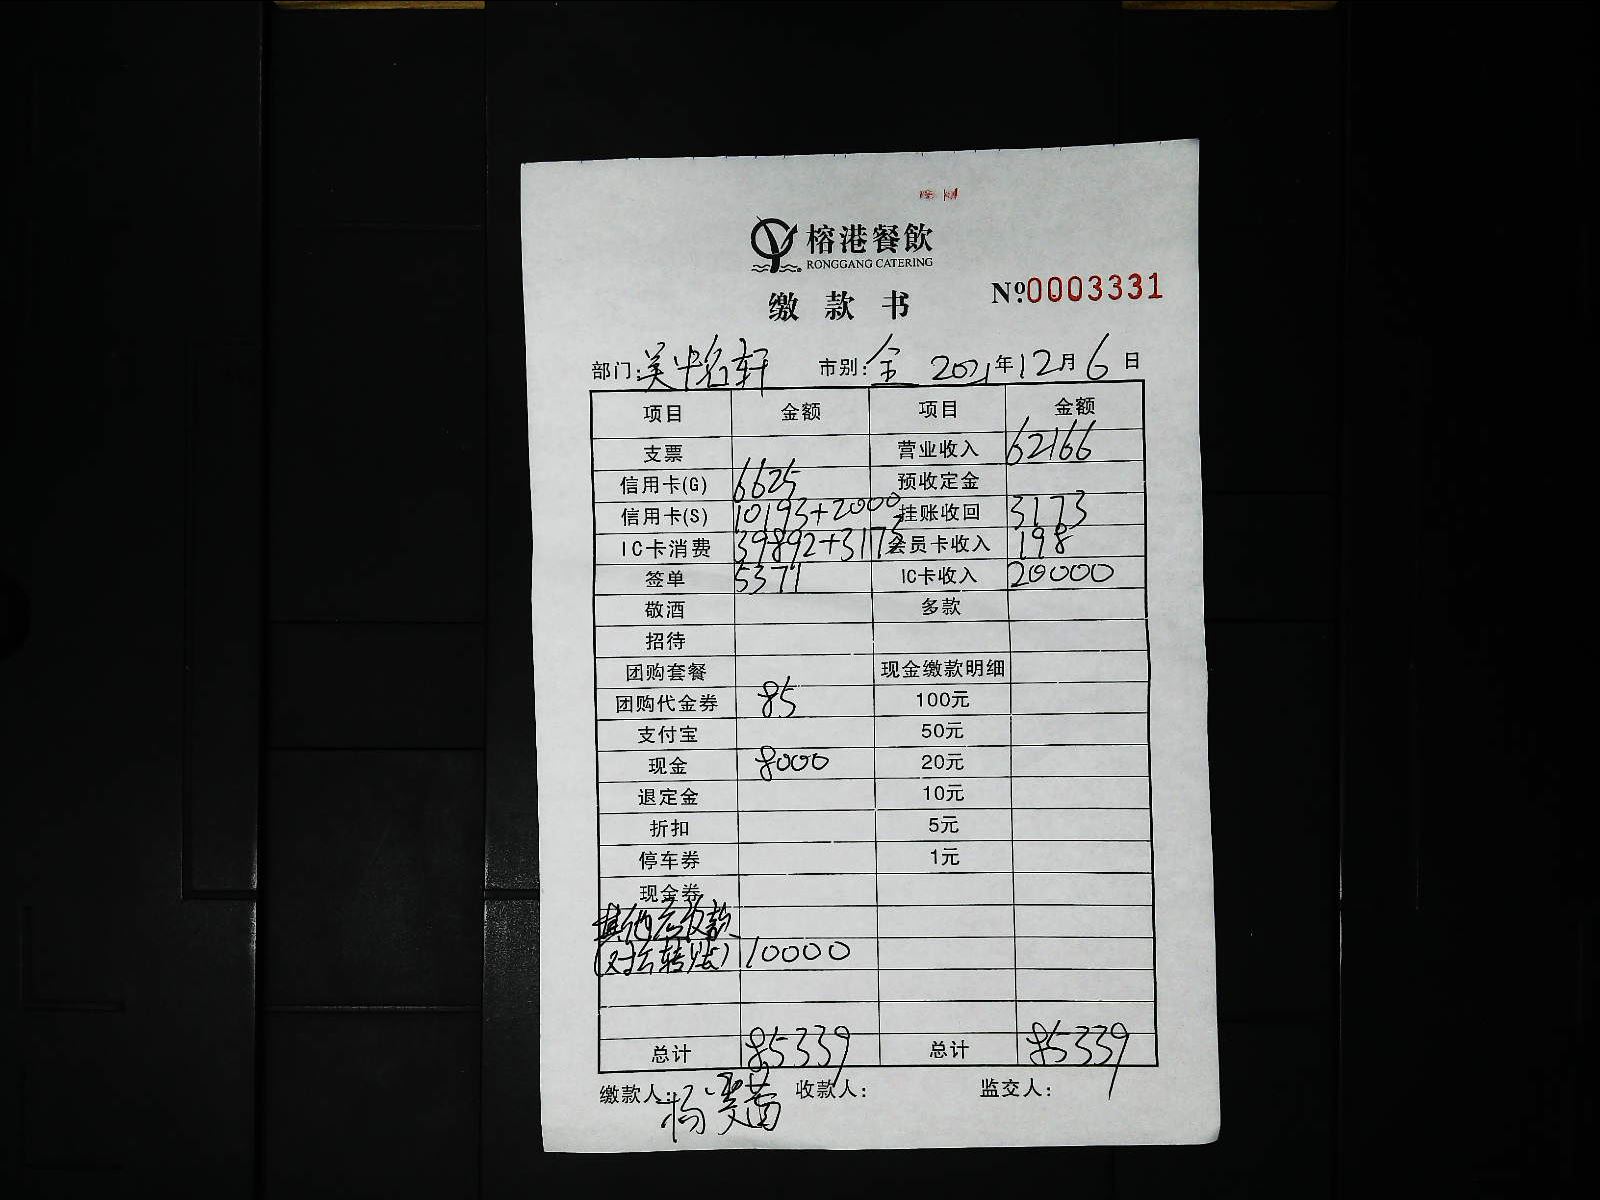 榕港餐飲
RONGGANG CATERING
缴款书 №0003331
部门:吴中名轩 市别:全 2021年12月6日
项目 金额 项目 金额
支票 营业收入 62166
信用卡(G) 6625 预收定金
信用卡(S) 10193+2000 挂账收回 3173
IC卡消费 39892+3173 会员卡收入 198
签单 5371 IC卡收入 20000
敬酒 多款
招待
团购套餐 现金缴款明细
团购代金券 85 100元
支付宝 50元
现金 8000 20元
退定金 10元
折扣 5元
停车券 1元
现金券
其他应收款
(对公转账) 10000
总计 85339 总计 85339
缴款人: 杨 收款人: 监交人: